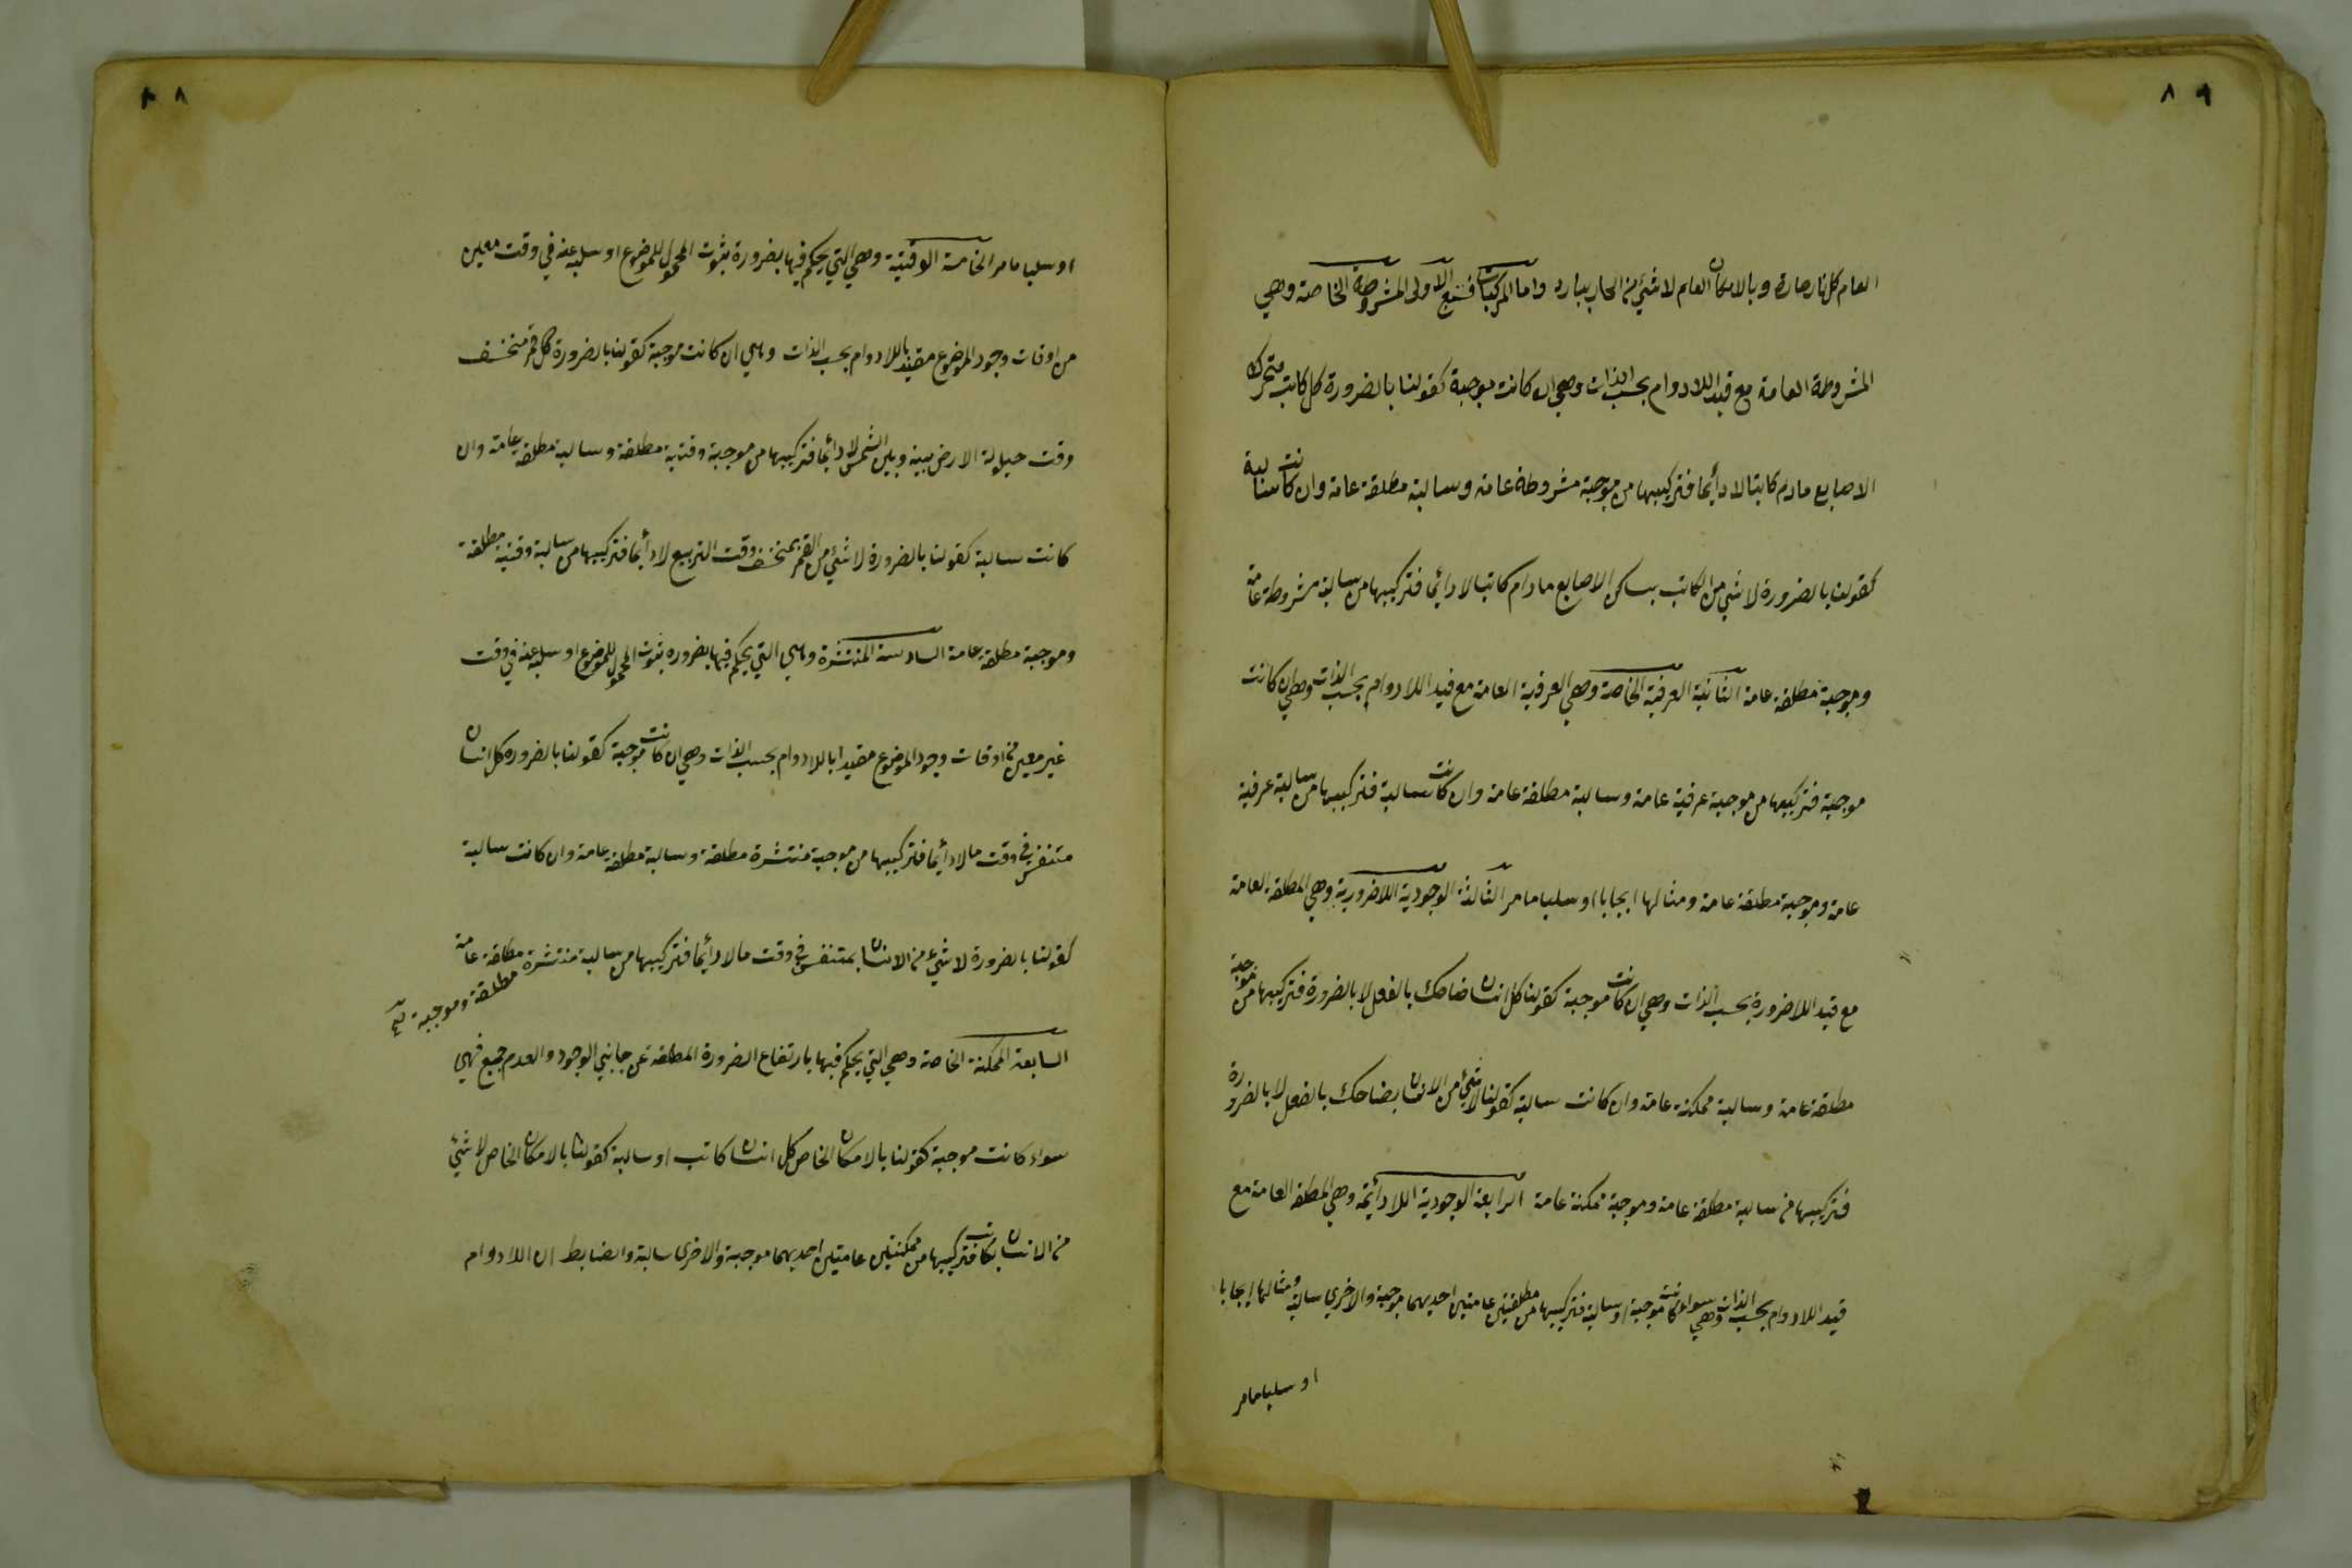 ٨٩
العام كل نار حارة وبالامكان العام لاشئ من الحار ببارد واما المركبات فسبع الاولى المشروطة الخاصة وهي
المشروطة العامة مع قيد اللادوام بحسب الذات وهي ان كانت موجبة كقولنا بالضرورة كل كاتب متحرك
الاصابع مادام كاتبا لا دائما فتركيبها من موجبة مشروطة عامة وسالبة مطلقة عامة وان كانت سالبة
كقولنا بالضرورة لاشئ من الكاتب بساكن الاصابع مادام كاتبا لا دائما فتركيبها من سالبة مشروطة عامة
وموجبة مطلقة عامة الثانية العرفية الخاصة وهي العرفية العامة مع قيد اللادوام بحسب الذات وهي ان كانت
موجبة فتركيبها من موجبة عرفية عامة وسالبة مطلقة عامة وان كانت سالبة فتركيبها من سالبة عرفية
عامة وموجبة مطلقة عامة ومثالها ايجابا او سلبا ما مر الثالثة الوجودية اللاضرورية وهي المطلقة العامة
مع قيد اللاضرورة بحسب الذات وهي ان كانت موجبة كقولنا كل انسان ضاحك بالفعل لا بالضرورة فتركيبها من موجبة
مطلقة عامة وسالبة ممكنة عامة وان كانت سالبة كقولنا لاشئ من الانسان بضاحك بالفعل لا بالضرورة
فتركيبها من سالبة مطلقة عامة وموجبة ممكنة عامة الرابعة الوجودية اللادائمة وهي المطلقة العامة مع
قيد اللادوام بحسب الذات وهي سواء كانت موجبة او سالبة فتركيبها من مطلقتين عامتين احديهما موجبة والاخرى سالبة ومثالها ايجابا
او سلبا ما مر
٨
او سلبا ما مر الخامسة الوقتية وهي التي يحكم فيها بضرورة ثبوت المحمول للموضوع او سلبه عنه في وقت معين
من اوقات وجود الموضوع مقيد باللادوام بحسب الذات وهي ان كانت موجبة كقولنا بالضرورة كل قمر منخسف
وقت حيلولة الارض بينه وبين الشمس لا دائما فتركيبها من موجبة وقتية مطلقة وسالبة مطلقة عامة وان
كانت سالبة كقولنا بالضرورة لا شئ من القمر بمنخسف وقت التربيع لا دائما فتركيبها من سالبة وقتية مطلقة
وموجبة مطلقة عامة السادسة المنتشرة وهي التي يحكم فيها بضرورة ثبوت المحمول للموضوع او سلبه عنه في وقت
غير معين من اوقات وجود الموضوع مقيدا باللادوام بحسب الذات وهي ان كانت موجبة كقولنا بالضرورة كل انسان
متنفس في وقت ما لا دائما فتركيبها من موجبة منتشرة مطلقة وسالبة مطلقة عامة وان كانت سالبة
كقولنا بالضرورة لا شئ من الانسان بمتنفس في وقت ما لا دائما فتركيبها من سالبة منتشرة مطلقة عامة
مطلقة وموجبة
السابعة الممكنة الخاصة وهي التي يحكم فيها بارتفاع الضرورة المطلقة عن جانبي الوجود والعدم جميع فهي
سواء كانت موجبة كقولنا بالامكان الخاص كل انسان كاتب او سالبة كقولنا بالامكان الخاص لا شئ
من الانسان بكاتب فتركيبها من ممكنتين عامتين احديهما موجبة والاخرى سالبة والضابط ان اللادوام